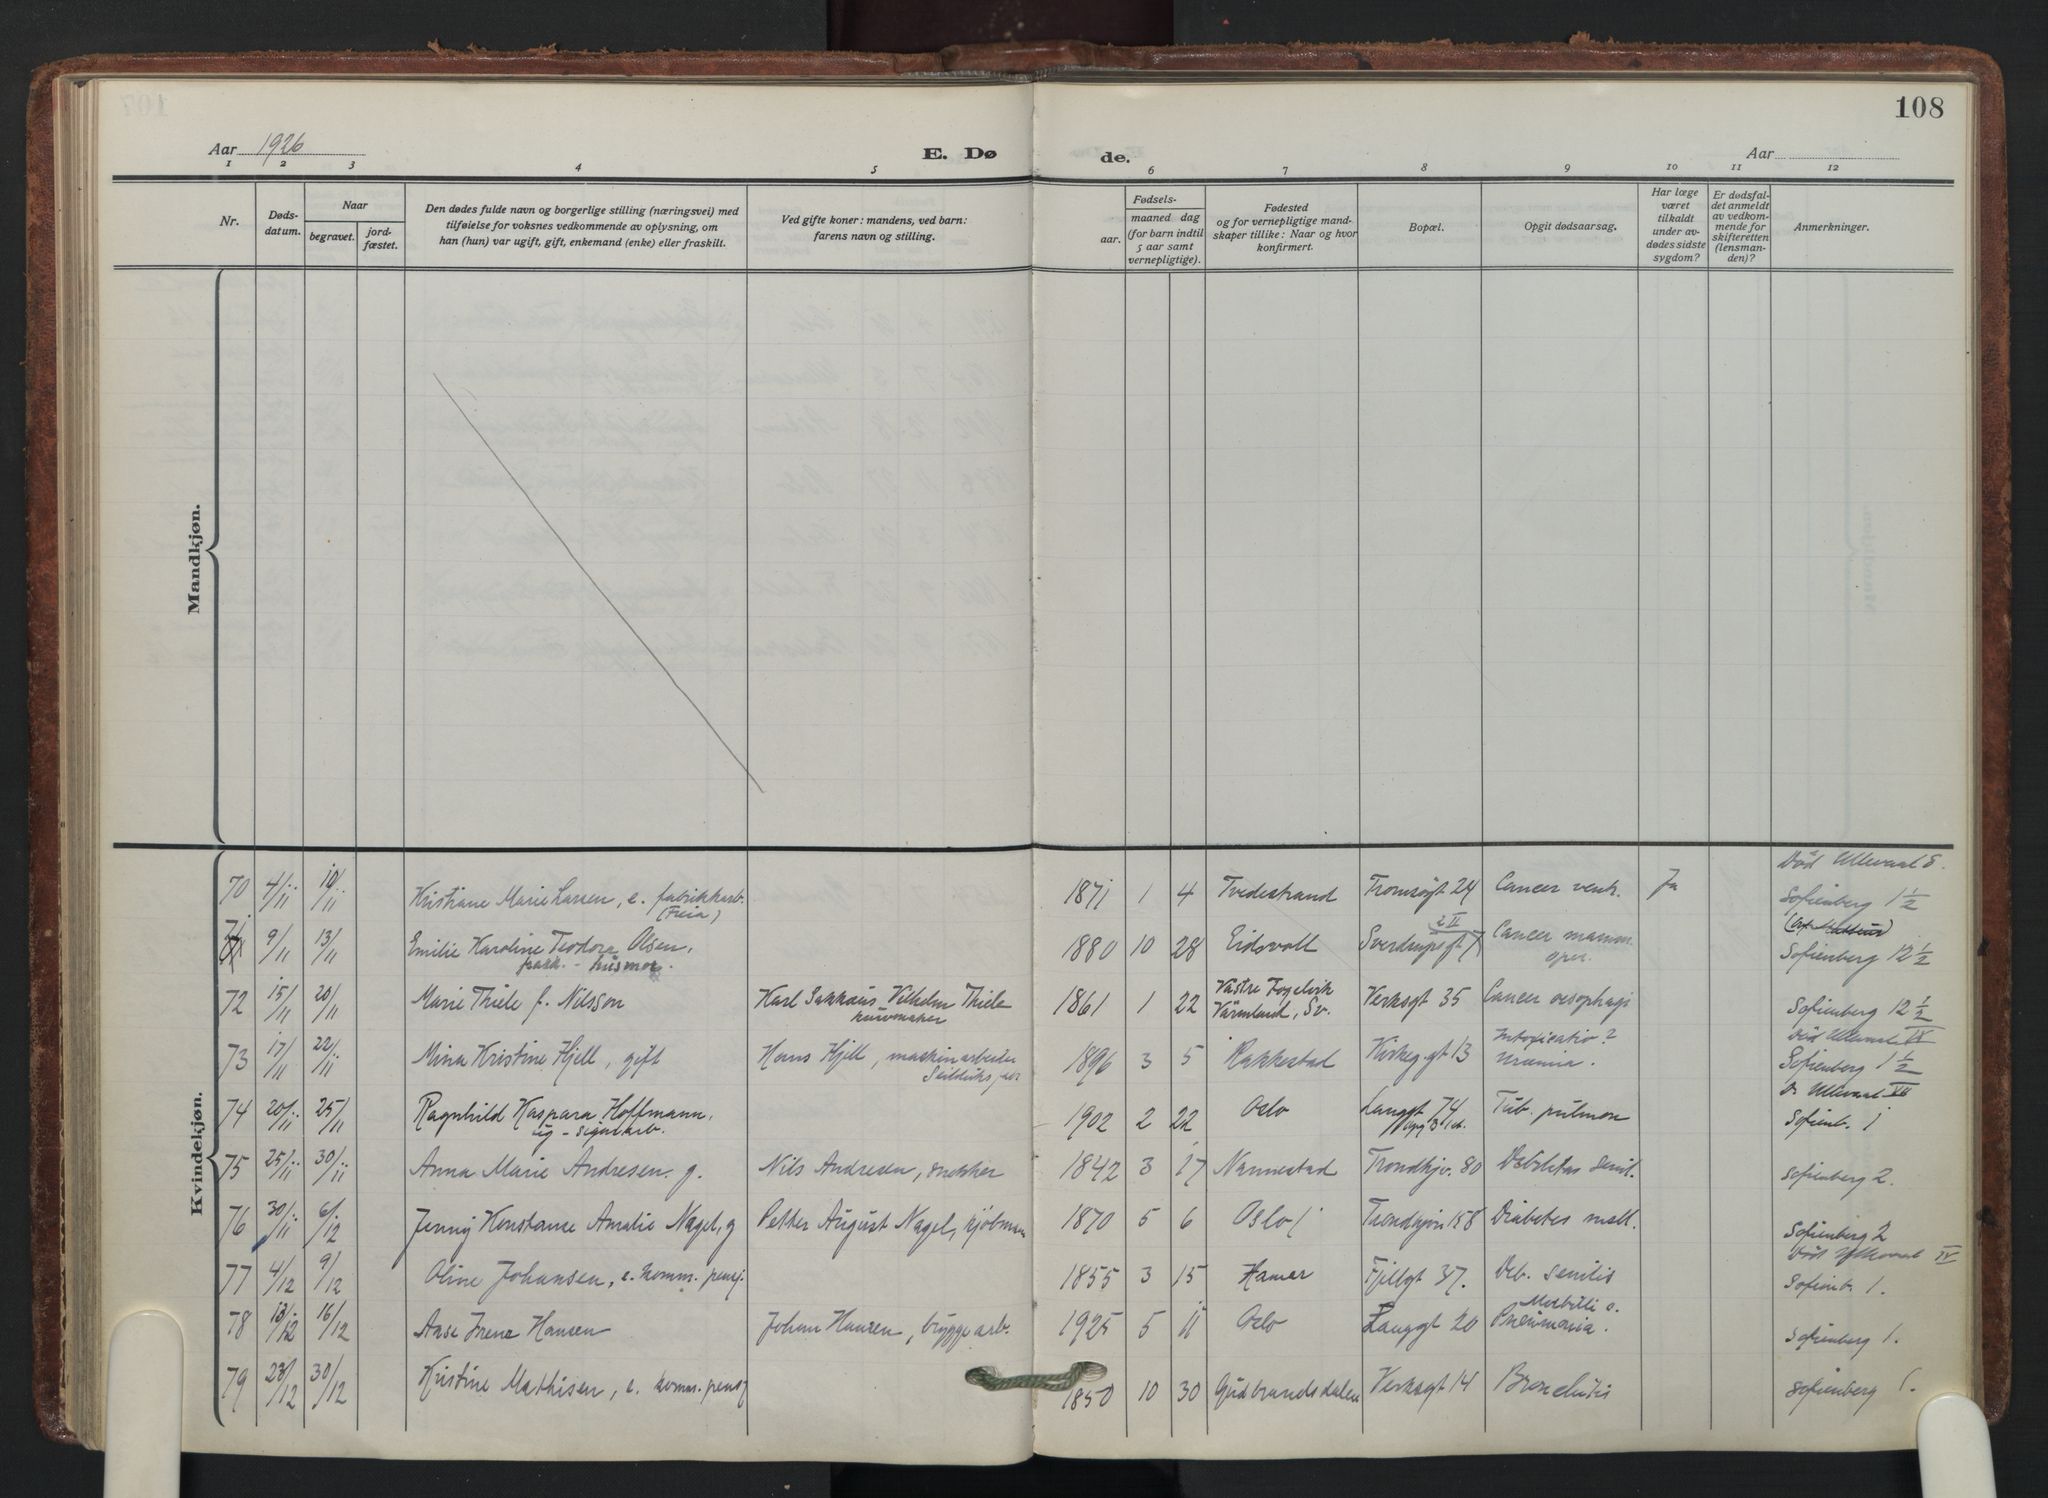 108
Aar 1926
E. Døde.
Aar
1 2 3 4 5 6 7 8 9 10 11 12
Nr.
Døds-
datum.
Naar
begravet.
jord-
fæstet.
Den dødes fulde navn og borgerlige stilling (næringsvei) med
tilføielse for voksnes vedkommende av oplysning, om
han (hun) var ugift, gift, enkemand (enke) eller fraskilt.
Ved gifte koner: mandens, ved barn:
farens navn og stilling.
Fødsels-
aar.
maaned dag
(for barn indtil
5 aar samt
vernepligtige).
Fødested
og for vernepligtige mand-
skaper tillike: Naar og hvor
konfirmert.
Bopæl.
Opgit dødsaarsag.
Har læge
været
tilkaldt
under av-
dødes sidste
sygdom?
Er dødsfal-
det anmeldt
av vedkom-
mende for
skifteretten
(lensman-
den)?
Anmerkninger.
Mandkjøn.
Kvindekjøn.
70 4/11 10/11 Kristiane Marie Larsen, e. fabrikkarb. (Freia) 1871 1 4 Tvedestrand Tromsøgt 24 Cancer ventr. Ja Död Ullevaal 5. Sofienberg 1 1/2
71 9/11 13/11 Emilie Karoline Teodora Olsen, husmor. 1880 10 28 Eidsvoll Sverdrupsgt 7 2 II Cancer mamm. oper. Sofienberg 12 1/2
72 15/11 20/11 Marie Thiele f. Nilsson Karl Vilhelm Thiele kurvmaker 1861 1 22 Västre Fogelvik Värmland, Sv. Verksgt 35 Cancer oesophagi Sofienberg 12 1/2
73 17/11 22/11 Mina Kristine Hjell, gift Hans Hjell, maskinarbeider Seilduksfabr 1896 3 5 Rakkestad Kirkeg.gt 13 Intoxicatio? Uremia. Död Ullevaal IX Sofienberg 1 1/2
74 20/11 25/11 Ragnhild Kaspara Hoffmann, ug - sigararb. 1902 2 22 Oslo Langgt 74 Tub. pulmon D. Ullevaal VII Sofienb. 1
75 25/11 30/11 Anna Marie Andresen. g. Nils Andresen, snekker 1842 3 17 Nannestad Trondhjv. 80 Debilitas senil. Sofienberg 2.
76 30/11 6/12 Jenny Konstanse Amalie Nagel, g Petter August Nagel, kjöbman 1870 5 6 Oslo Trondhjvn 158 Diabetes mell. Sofienberg 2
77 4/12 9/12 Oline Johansen, e. komm. pensj. 1855 3 15 Hamar Fjellgt 37. Deb. senilis Död Ullevaal IV Sofienb. 1.
78 13/12 16/12 Aase Irene Hansen Johan Hansen, bryggearb. 1925 5 11 Oslo Langgt 20 Morbilli o. Pneumonia. Sofienberg 1.
79 23/12 30/12 Kristine Mathisen, e. komm. pensj 1850 10 30 Gudbrandsdalen Verksgt 14 Bronchitis Sofienberg 1.